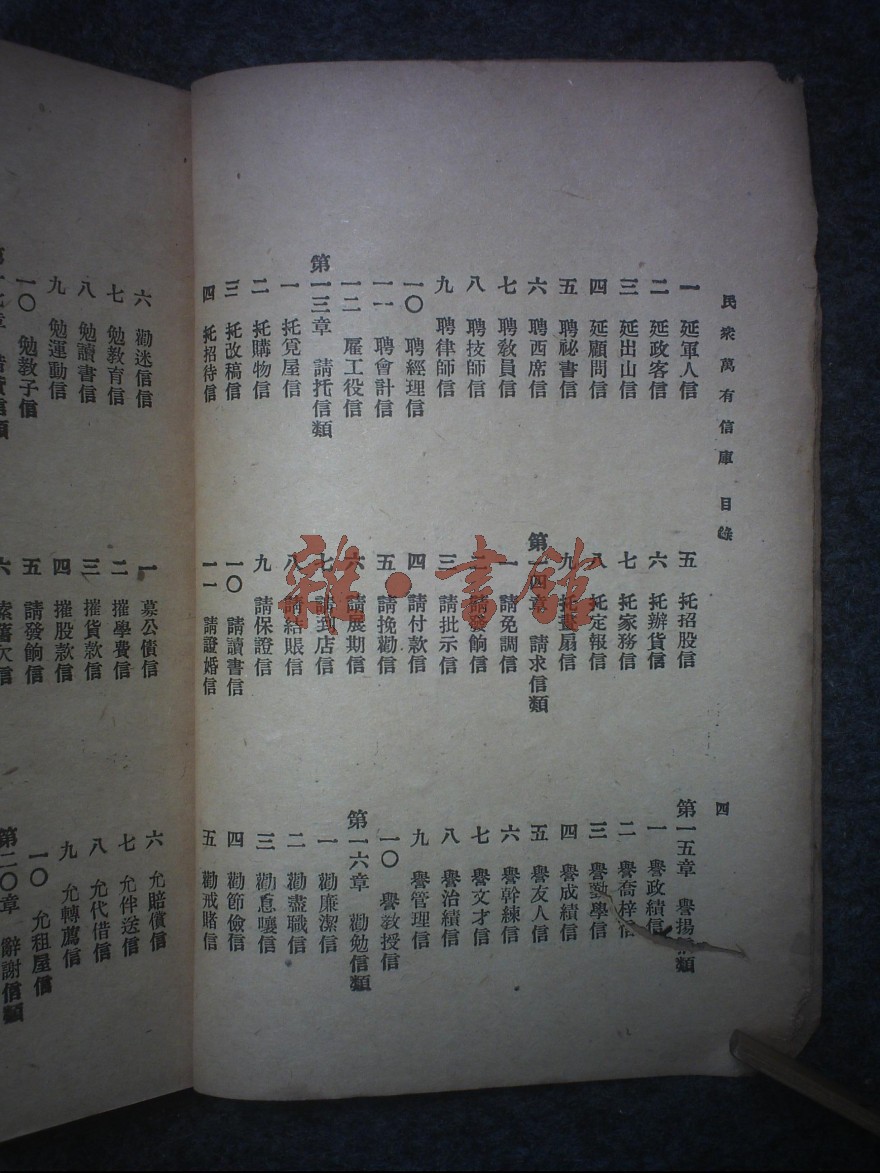 民衆萬有信庫 目錄
四
一 延軍人信
二 延政客信
三 延出山信
四 延顧問信
五 聘祕書信
六 聘西席信
七 聘教員信
八 聘技師信
九 聘律師信
一〇 聘經理信
一一 聘會計信
一二 雇工役信
第一三章 請托信類
一 托覓屋信
二 托購物信
三 托改稿信
四 托招待信
五 托招股信
六 托辦貨信
七 托家務信
八 托定報信
九 托畫扇信
第一四章 請求信類
一 請免調信
二 請發餉信
三 請批示信
四 請付款信
五 請挽勸信
六 請展期信
七 請到店信
八 請結賬信
九 請保證信
一〇 請讀書信
一一 請證婚信
第一五章 譽揚信類
一 譽政績信
二 譽喬梓信
三 譽勤學信
四 譽成績信
五 譽友人信
六 譽幹練信
七 譽文才信
八 譽治績信
九 譽管理信
一〇 譽教授信
第一六章 勸勉信類
一 勸廉潔信
二 勸盡職信
三 勸息嚷信
四 勸節儉信
五 勸戒賭信
六 勸迷信信
七 勉教育信
八 勉讀書信
九 勉運動信
一〇 勉教子信
一 募公債信
二 摧學費信
三 摧貨款信
四 摧股款信
五 請發餉信
六 索舊欠信
六 允賠償信
七 允伴送信
八 允代借信
九 允轉薦信
一〇 允租屋信
第二〇章 辭謝信類
雜·書館